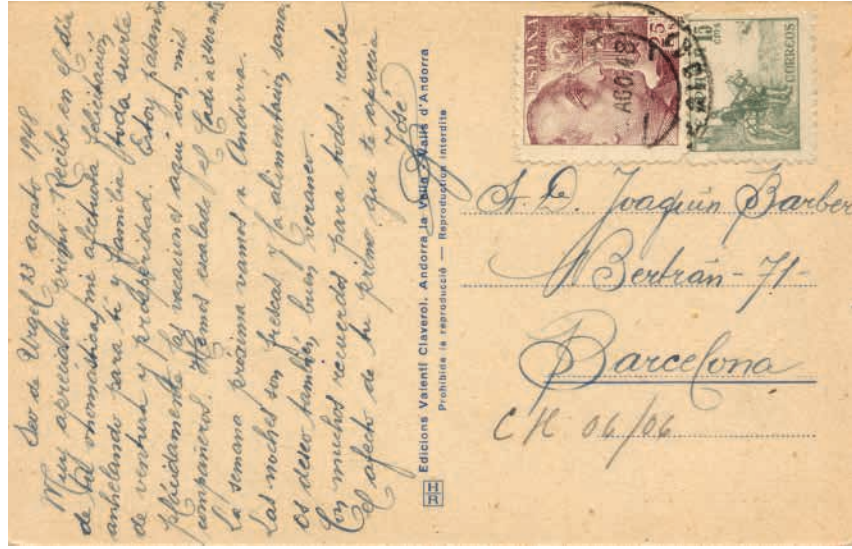 Seo de Urgel 13 agosto 1948
Muy apreciado primo: Recibe en el día
de tu onomástica, mi afectuosa felicitación,
anhelando para ti y familia toda suerte
de ventura y prosperidad. Estoy pasando
plácidamente las vacaciones aquí con mis
compañeros. Hemos escalado el Cadí a 2400 mts
La semana próxima vamos a Andorra.
Las noches son frescas y la alimentación sana.
os deseo también buen veraneo.
Con muchos recuerdos para todos, recibe
el afecto de tu primo que te aprecia
José
Edicions Valentí Claverol. Andorra la Vella - Valls d'Andorra
Prohibida la reproducció — Reproduction interdite
HR
ESPAÑA
CORREOS
25 cts
15 cts
CORREOS
AGO 48
Sr. D. Joaquín Barber
Bertrán - 71 -
Barcelona
CH 06/06